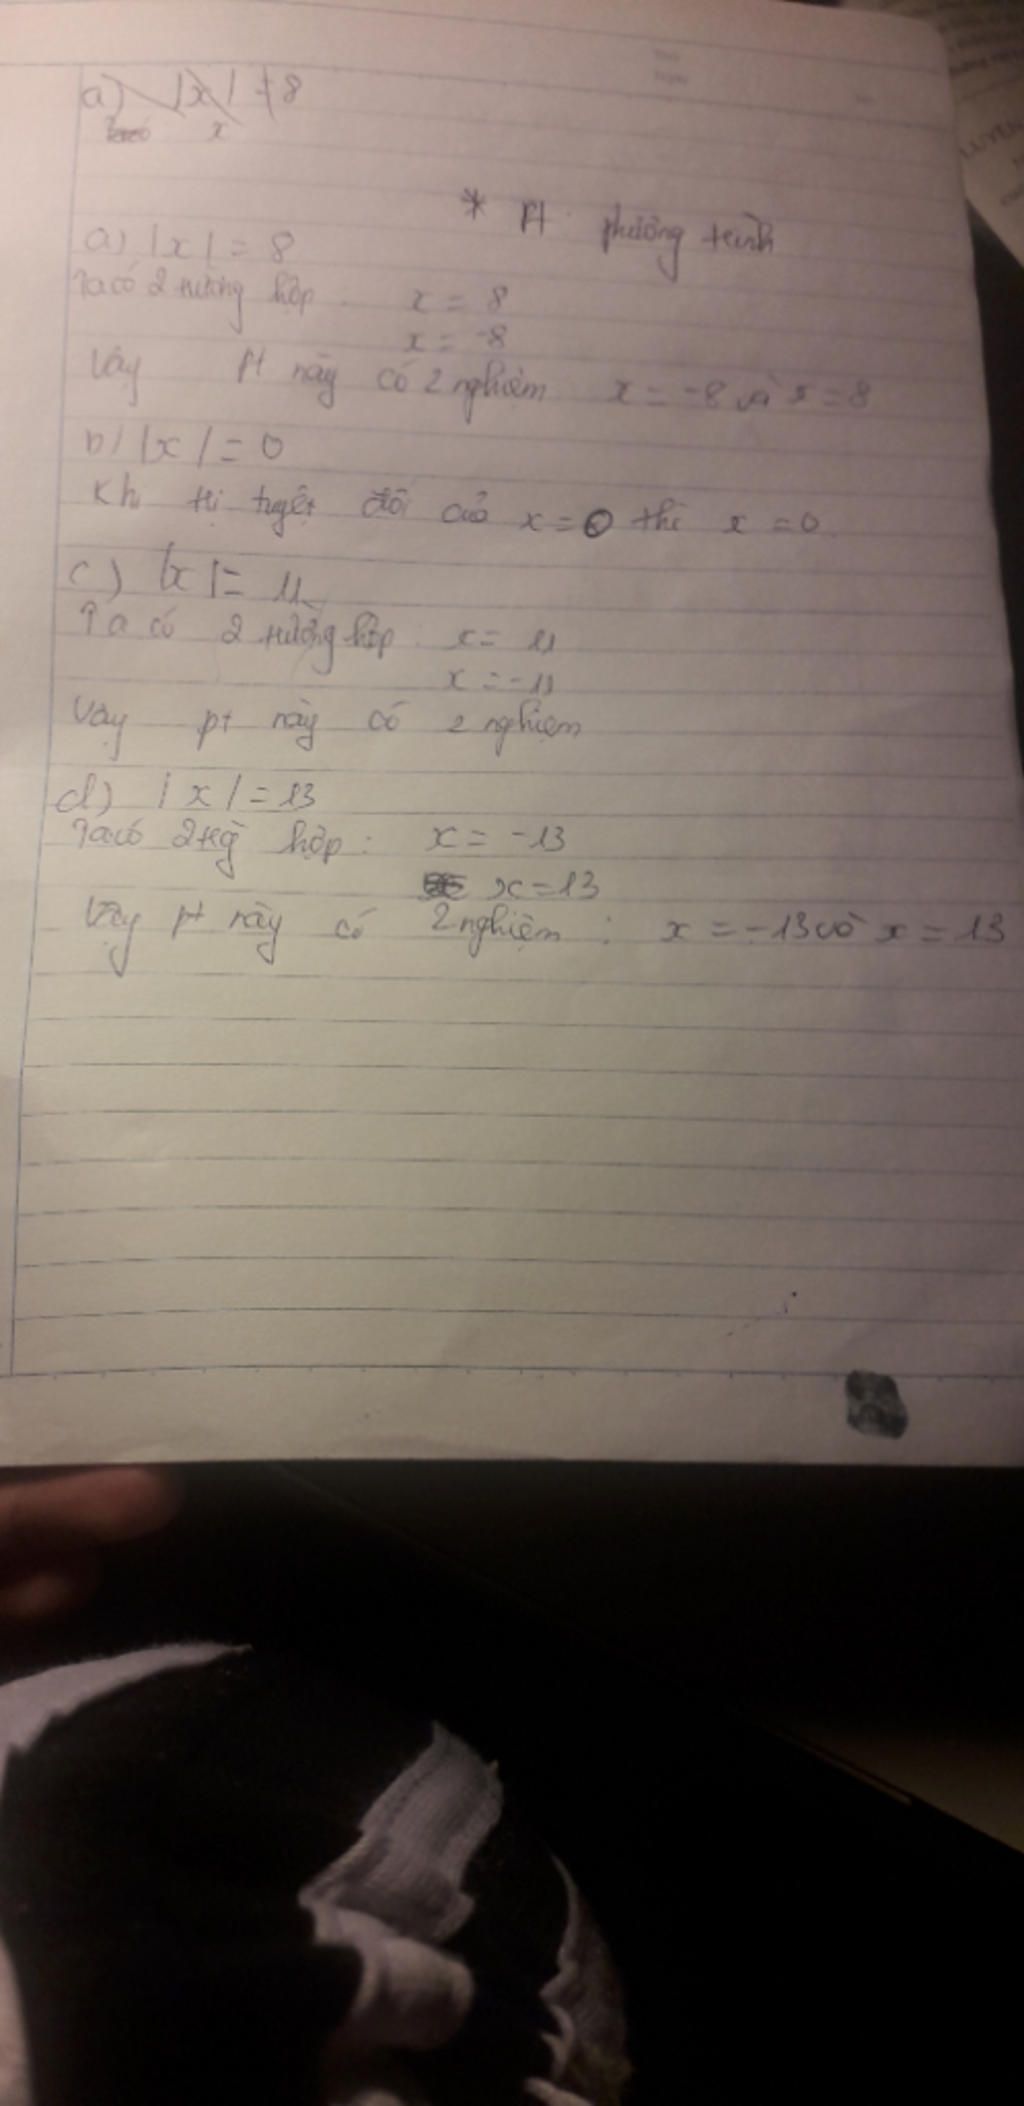 a) |x| = 8
x
* Pt: phương trình
a) |x| = 8
Ta có 2 trường hợp: x = 8
x = -8
Vậy Pt này có 2 nghiệm x = -8 và x = 8
b) |x| = 0
Khi trị tuyệt đối của x = 0 thì x = 0
c) |x| = 11
Ta có 2 trường hợp: x = 11
x = -11
Vậy pt này có 2 nghiệm
d) |x| = 13
Ta có 2 hợp: x = -13
x = 13
Vậy pt này có 2 nghiệm: x = -13 và x = 13
LUYỆN